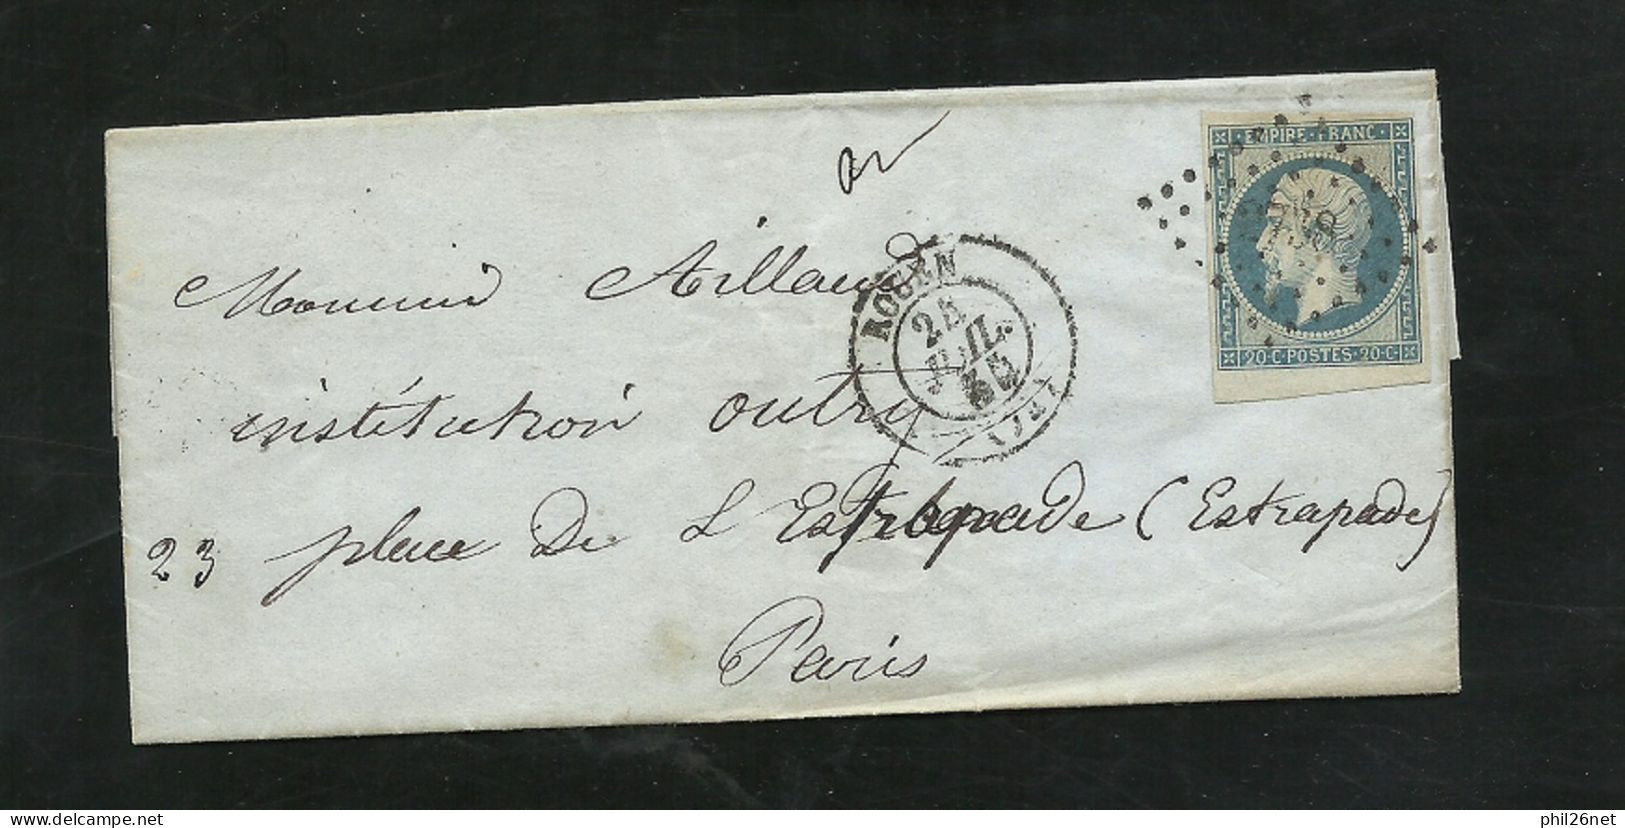 EMPIRE · FRANC ·
20 · C · POSTES · 20 · C ·
ROUEN
25
JUIL.
55
Monsieur Aillaud
institution outry
23 place De L'Estrapade (Estrapade)
Paris
delcampe.net
phil26net